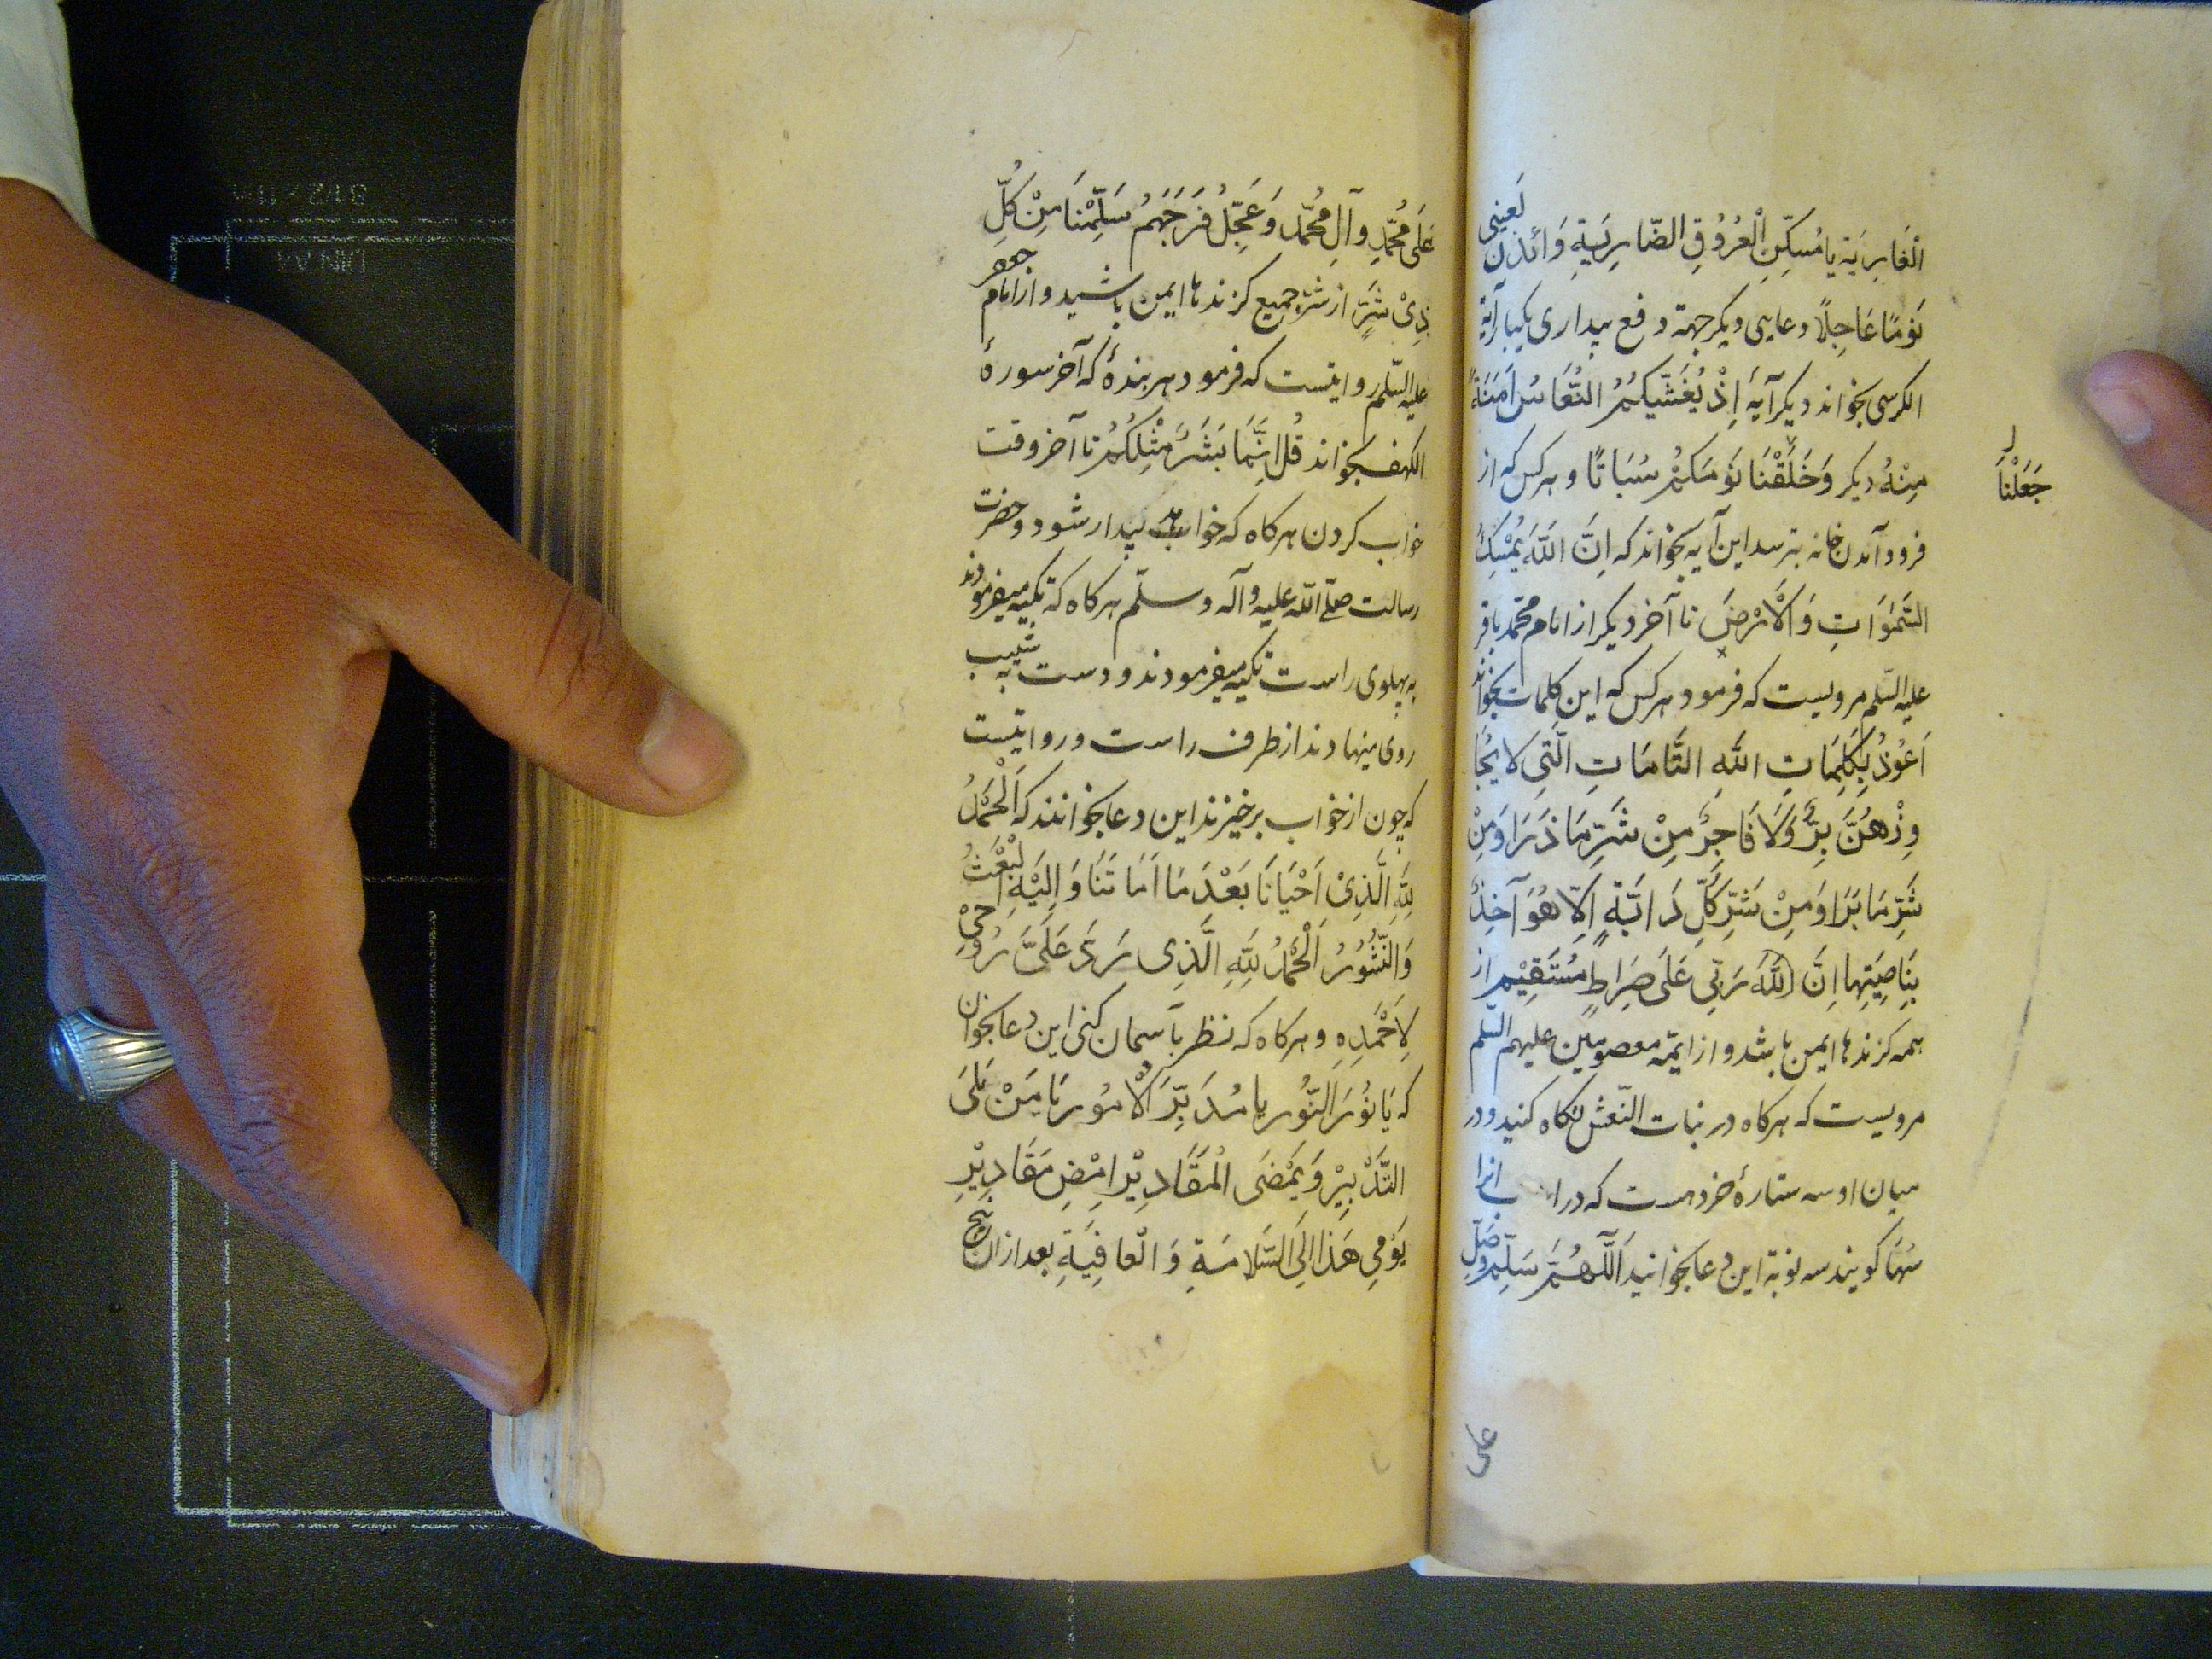 الْعَارِيَةِ يا مُسَكِّنَ الْعُرُوُقِ الضّارِبَةِ وَائذَن لَعینی
نَوْمًا عَاجِلًا دعایی دیکر جهة دفع بیداری یکبار آیة
الکرسی بخواند دیکر آیهٔ اِذْ يُغَشّیِكُمُ النُّعَاسُ اَمَنَةً
مِنْهُ دیکر وَخَلَقْنَا نَوْمَكُمْ سُبَاتًا و هر کس که از
جَعَلْنَا
فرود آمدن خانه بترسد این آیه بخواند که اِنَّ اللَّهَ يُمْسِكُ
السَّمٰوَاتِ وَالْاَرْضَ تا آخر دیکر از امام محمّد باقر
علیه السّلم مرویست که فرمود هر کس که این کلمات بخواند
اَعُوُذُ بِكَلِمَاتِ اللَّهِ التَّامَاتِ الَّتِی لا يُجَا
وِزْهُنَّ بِرٌّ وَلَا فَاجِرٌ مِنْ شَرِّ مَا ذَرَا وَمِنْ
شَرِّ مَا بَرَا وَمِنْ شَرِّ كُلِّ دَابَّةٍ اِلّا هُوَ آخِذٌ
بِنَاصِيَتِهِا اِنَّ اللَّهَ رَبّی عَلَى صِرَاطٍ مُسْتَقِيْمٍ از
همه کزندها ایمن باشد و از ایمّه معصومین علیهم السّلم
مرویست که هر کاه در بنات النّعش نکاه کنید و در
میان او سه ستارهٔ خرد هست که درا انرا
سُهَا کویند سه نوبة این دعا بخوانید اَللَّهُمَّ سَلِّمْ وَصَلِّ
علی
عَلَى مُحَمَّدٍ وآلِ مُحَمَّد وَعَجِّلْ فَرَجَهُمْ سَلِّمْنَا مِنْ كُلِّ
ذِیْ شَرٍّ از شرّ جمیع کزندها ایمن باشید و از امام جعفر
علیه السّلم روایتست که فرمود هر بندهٔ که آخر سورهٔ
الکهف بخواند قُل اِنَّمَا بَشَرٌ مِثْلُكُمْ تا آخر وقت
خواب کردن هر کاه که خواهد بیدار شود و حضرت
رسالت صلّی اللّه علیه وآله وسلّم هر کاه که تکیه میفرمودند
به پهلوی راست تکیه میفرمودند و دست به شیب
روی مینهادند از طرف راست و روایتست
که چون از خواب برخیزند این دعا بخوانند که اَلْحَمْدُ
لِلّهِ الَّذِیْ اَحْيَانَا بَعْدَ مَا اَمَاتَنَا وَاِلَيْهِ الْبَعْثُ
وَالنُّشُوُرُ اَلْحَمْدُ لِلَّهِ الَّذِی رَدَّ عَلَىَّ رُوُحیْ
لِاَحْمَدِهِ و هر کاه که نظر بآسمان کنی این دعا بخوان
که يَا نُوُرَ النُّوُر يا مُدَبِّرَ الْاُمُوُر يَا مَنْ يَلیَ
التَّدْبِيْرِ وَيَمْضَى الْمَقَادِيْرِ امْضِ مَقَادِيْرِ
يَوْمی هَذَا اِلَى السَّلامَةِ وَالْعَافِيَةِ بعد از ان پنج